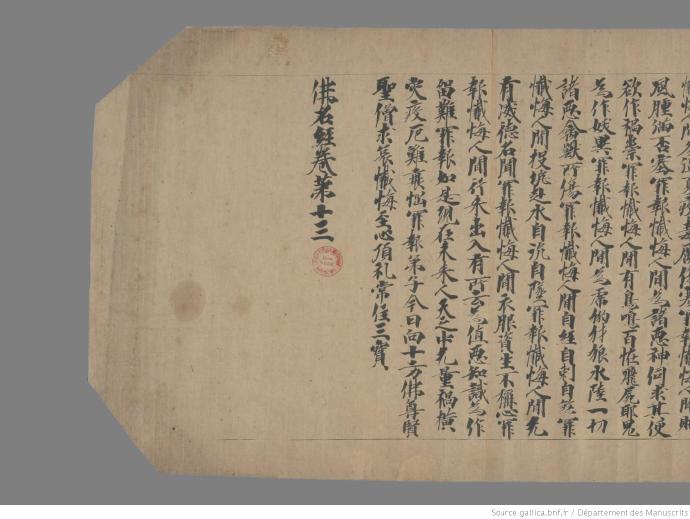 風腫滿否塞罪報懺悔人間為諸惡神伺求其便
欲作禍祟罪報懺悔人間有鳥鳴百怪飛屍耶鬼
為作妖異罪報懺悔人間為虎豹犲狼水陸一切
諸惡禽獸所傷罪報懺悔人間自經自刺自煞罪
懺悔人間投坑赴水自沉自墜罪報懺悔人間无
有威德名聞罪報懺悔人間衣服資生不稱心罪
報懺悔人間行來出入有所云為值惡知識為作
留難罪報如是現在未來人天之中无量禍橫
灾疫厄難衰惱罪報弟子今日向十方佛尊賢
聖僧求哀懺悔至心頂礼常住三寶
佛名經卷第十三
Source gallica.bnf.fr / Département des Manuscrits